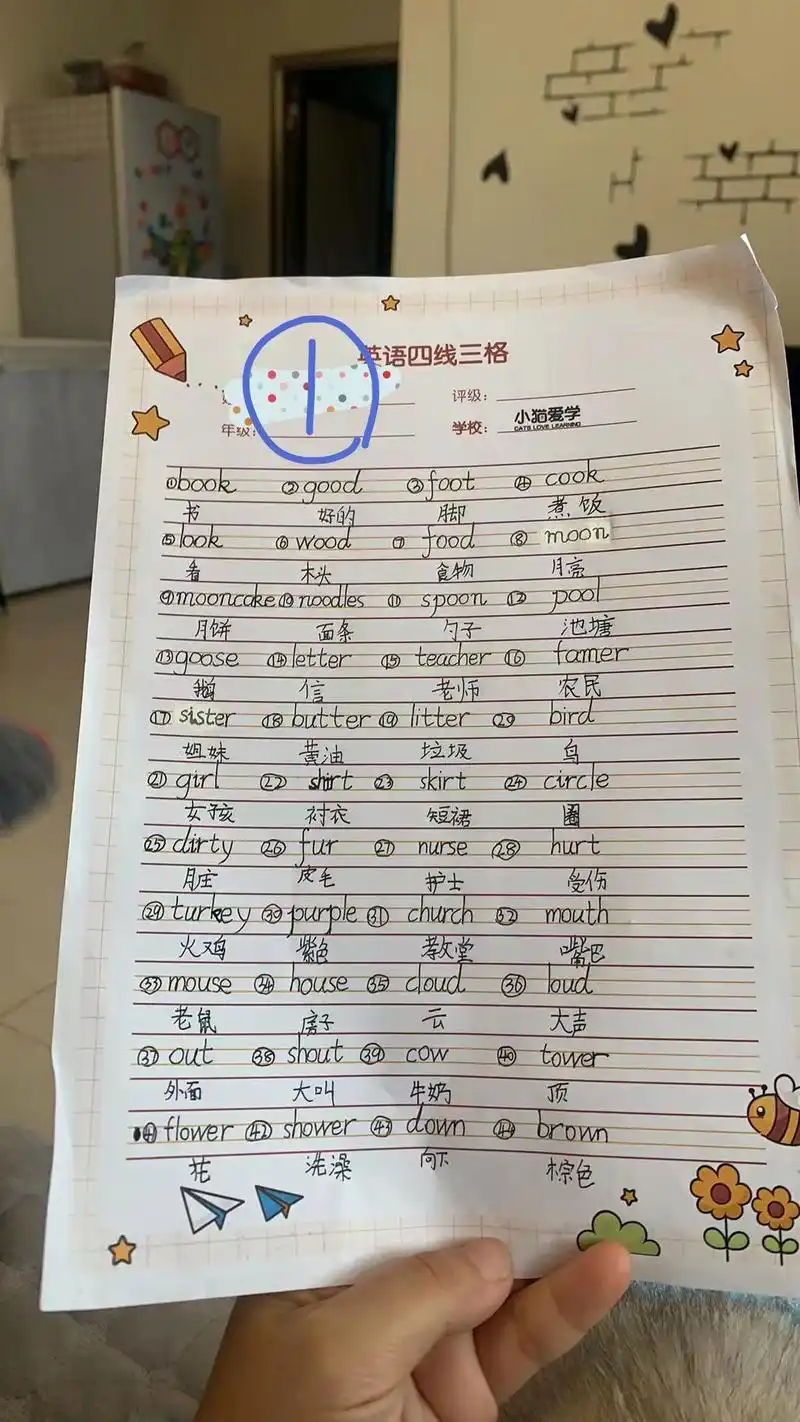 1
英语四线三格
评级:
年级: 学校: 小猫爱学
CATS LOVE LEARNING
①book ②good ③foot ④ cook
书 好的 脚 煮饭
⑤look ⑥ wood ⑦ food ⑧ moon
看 木头 食物 月亮
⑨mooncake⑩noodles ⑪ spoon ⑫ pool
月饼 面条 勺子 池塘
⑬goose ⑭letter ⑮ teacher ⑯ famer
鹅 信 老师 农民
⑰ sister ⑱ butter ⑲ litter ⑳ bird
姐妹 黄油 垃圾 鸟
㉑ girl ㉒ shirt ㉓ skirt ㉔ circle
女孩 衬衣 短裙 圈
㉕ dirty ㉖ fur ㉗ nurse ㉘ hurt
脏 皮毛 护士 受伤
㉙ turkey ㉚ purple ㉛ church ㉜ mouth
火鸡 紫色 教堂 嘴巴
㉝ mouse ㉞ house ㉟ cloud ㊱ loud
老鼠 房子 云 大声
㊲ out ㊳ shout ㊴ cow ㊵ tower
外面 大叫 牛奶 顶
㊶ flower ㊷ shower ㊸ down ㊹ brown
花 洗澡 向下 棕色